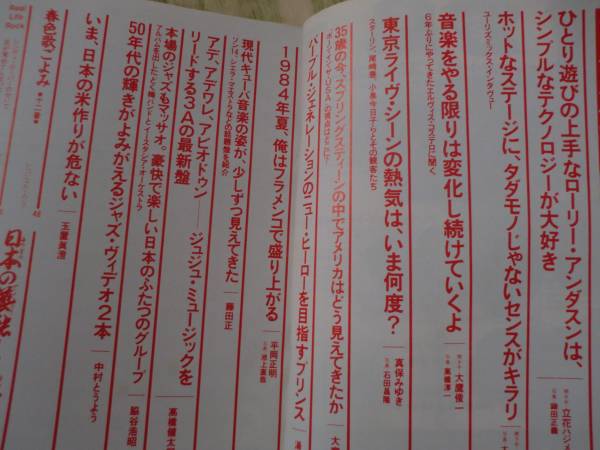 ひとり遊びの上手なローリー・アンダスンは、
シンプルなテクノロジーが大好き
立花ハジメ
鋤田正義
ホットなステージに、タダモノじゃないセンスがキラリ
ユーリズミックス・インタヴュー
音楽をやる限りは変化し続けていくよ
6年ぶりにやってきたエルヴィス・コステロに聞く
大鷹俊一
東京ライヴ・シーンの熱気は、いま何度？
スターリン、尾崎豊、小泉今日子らとその観客たち
真保みゆき
石田昌隆
35歳の今、スプリングスティーンの中でアメリカはどう見えてきたか
パープル・ジェネレーションのニュー・ヒーローを目指すプリンス
1984年夏、俺はフラメンコで盛り上がる
平岡正明
現代キューバ音楽の姿が、少しずつ見えてきた
藤田正
アデ、アデワレ、アビオドゥン
リードする3Aの最新盤
ジュジュ・ミュージックを
高橋健太
本場のジャズもマッサオ。豪快で楽しい日本のふたつのグループ
脇谷浩昭
50年代の輝きがよみがえるジャズ・ヴィデオ2本
中村とうよう
いま、日本の米作りが危ない
玉置眞澄
春色歌ごよみ
Real Life Rock
48